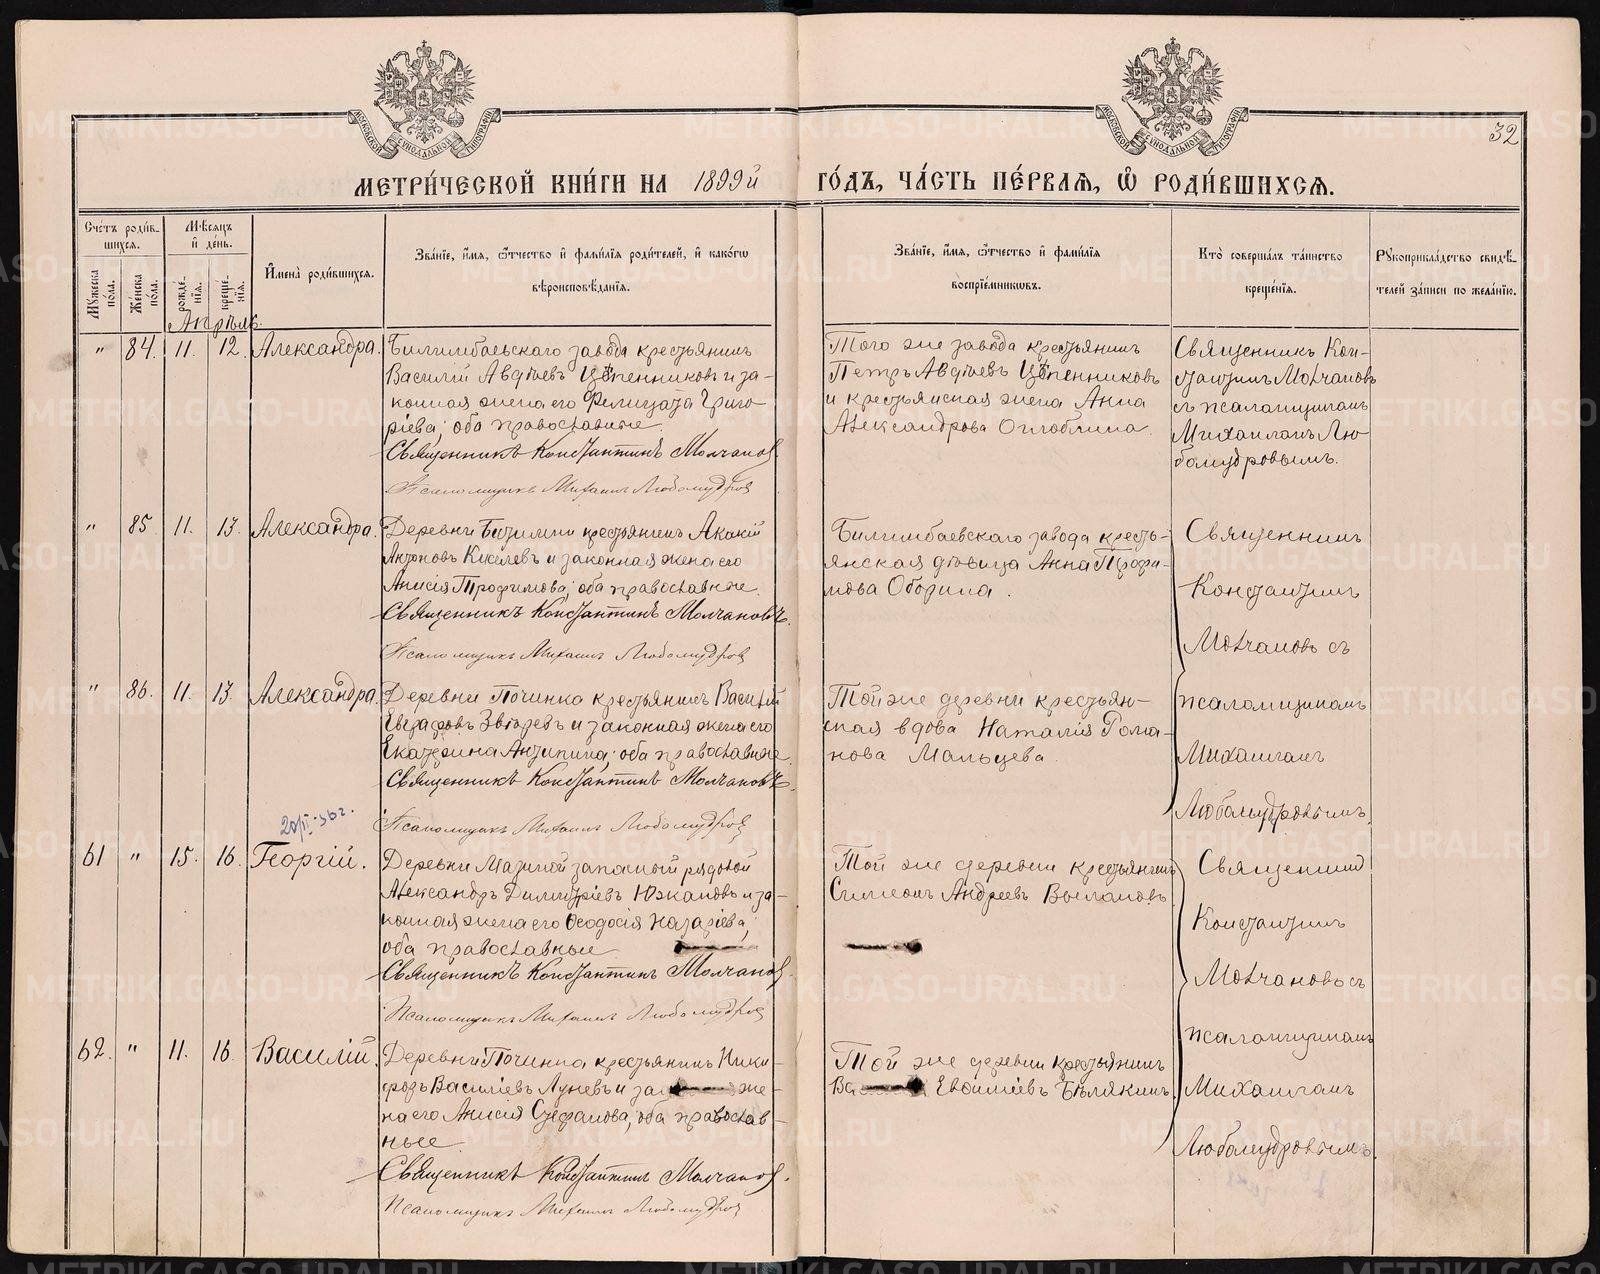 32
МЕТРИ́ЧЕСКОЙ КНИ́ГИ НА 1899й ГО́ДЪ, ЧА́СТЬ ПЕ́РВАѦ, Ѡ РОДИ́ВШИХСѦ.
Сче́тъ роди́вшихсѧ.
Мꙋжеска по́ла.
Же́нска по́ла.
Мѣ́сѧцъ и҆ де́нь.
рожде́нїѧ.
креще́нїѧ.
И҆мена̀ роди́вшихсѧ.
Зва́нїе, и҆́мѧ, ѻ҆́тчество и҆ фами́лїѧ роди́телей, и҆ како́гѡ
вѣроисповѣ́данїѧ.
Зва́нїе, и҆́мѧ, ѻ҆́тчество и҆ фами́лїѧ
воспрїе́мникѡвъ.
Кто̀ соверша́лъ та́инство
креще́нїѧ.
Рꙋкоприкла́дство свидѣ́-
телей за́писи по жела́нїю.
Апрѣль.
" 84. 11. 12. Александра.
Билимбаевскаго завода крестьянинъ
Василій Авдѣевъ Цѣпенниковъ и за-
конная жена его Фелицата Григо-
ріева; оба православные.
Священникъ Константинъ Молчановъ.
Псаломщикъ Михаилъ Любомудровъ
Того же завода крестьянинъ
Петръ Авдѣевъ Цѣпенниковъ
и крестьянская жена Анна
Александрова Оглоблина.
Священникъ Кон-
стантинъ Молчановъ
съ псаломщикомъ
Михаиломъ Лю-
бомудровымъ.
" 85. 11. 13. Александра.
Деревни крестьянинъ Акакій
Антоновъ Киселевъ и законная жена его
Анисія Трофимова; оба православные.
Священникъ Константинъ Молчановъ.
Псаломщикъ Михаилъ Любомудровъ
Билимбаевскаго завода кресть-
янская дѣвица Анна Трофи-
мова Оборина.
Священникъ
Константинъ
Молчановъ съ
псаломщикомъ
Михаиломъ
Любомудровымъ.
" 86. 11. 13. Александра.
Деревни Починка крестьянинъ Василій
Евграфовъ Звѣревъ и законная жена его
Екатерина Антипина; оба православные.
Священникъ Константинъ Молчановъ.
Псаломщикъ Михаилъ Любомудровъ
Той же деревни крестьян-
ская вдова Наталія Рома-
нова Мальцева.
61 " 15. 16. Георгій.
Деревни запасный рядовой
Александръ Димитріевъ Южаковъ и за-
конная жена его Ѳеодосія Назаріева;
оба православные
Священникъ Константинъ Молчановъ.
Псаломщикъ Михаилъ Любомудровъ
Той же деревни крестьянинъ
Симеонъ Андреевъ
Священникъ
Константинъ
Молчановъ съ
псаломщикомъ
Михаиломъ
Любомудровымъ.
62. " 11. 16. Василій.
Деревни Починка крестьянинъ Ники-
форъ Василіевъ Лузневъ и за же-
на его Анисія Стефанова; оба православ-
ные.
Священникъ Константинъ Молчановъ.
Псаломщикъ Михаилъ Любомудровъ
Той же деревни крестьянинъ
Ва Евѳиміевъ Бѣлякинъ.
METRIKI.GASO-URAL.RU